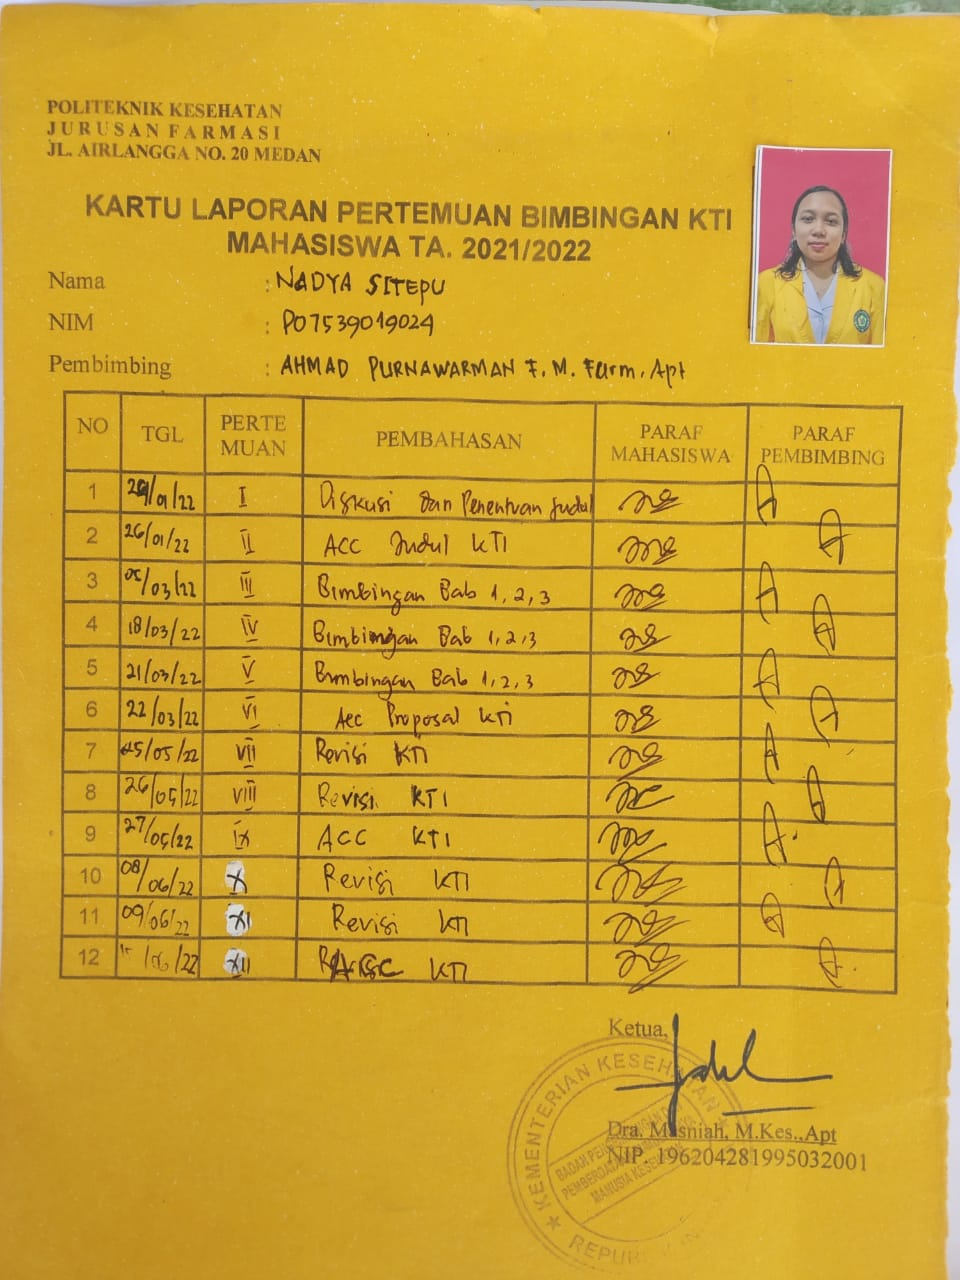 POLITEKNIK KESEHATAN
JURUSAN FARMASI
JL. AIRLANGGA NO. 20 MEDAN
KARTU LAPORAN PERTEMUAN BIMBINGAN KTI
MAHASISWA TA. 2021/2022
Nama : NADYA SITEPU
NIM : P07539019024
Pembimbing : AHMAD PURNAWARMAN F. M. Farm, Apt
NO TGL PERTE MUAN PEMBAHASAN PARAF MAHASISWA PARAF PEMBIMBING
1 /01/22 I Diskusi dan Penentuan Judul
2 26/01/22 II ACC Judul KTI
3 /03/22 III Bimbingan Bab 1, 2, 3
4 18/03/22 IV Bimbingan Bab 1,2,3
5 21/03/22 V Bimbingan Bab 1,2,3
6 22/03/22 VI Acc Proposal KTI
7 25/05/22 VII Revisi KTI
8 26/05/22 VIII Revisi KTI
9 27/05/22 IX ACC KTI
10 08/06/22 X Revisi KTI
11 09/06/22 XI Revisi KTI
12 /06/22 XII KTI
Ketua,
Dra. Masniah, M.Kes.,Apt
NIP. 196204281995032001
KEMENTERIAN KESEHATAN
BADAN
PEMBERDAYAAN
MANUSIA KESEHATAN